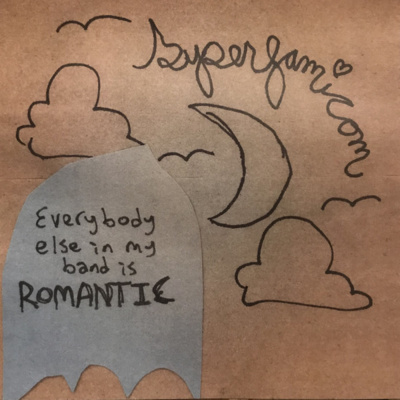 Superfamicom
Everybody
else in my
band is
ROMANTIC